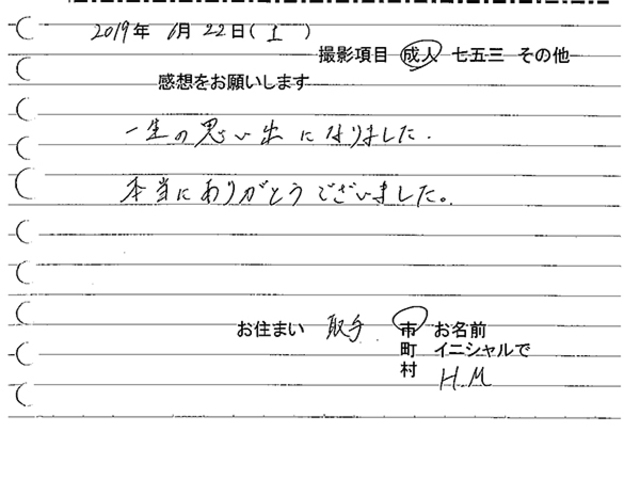 2019年 6月 22日( 土 )
撮影項目 成人 七五三 その他
感想をお願いします
一生の思い出になりました.
本当にありがとうございました。
お住まい 取手 市 お名前
町 イニシャルで
村 H.M